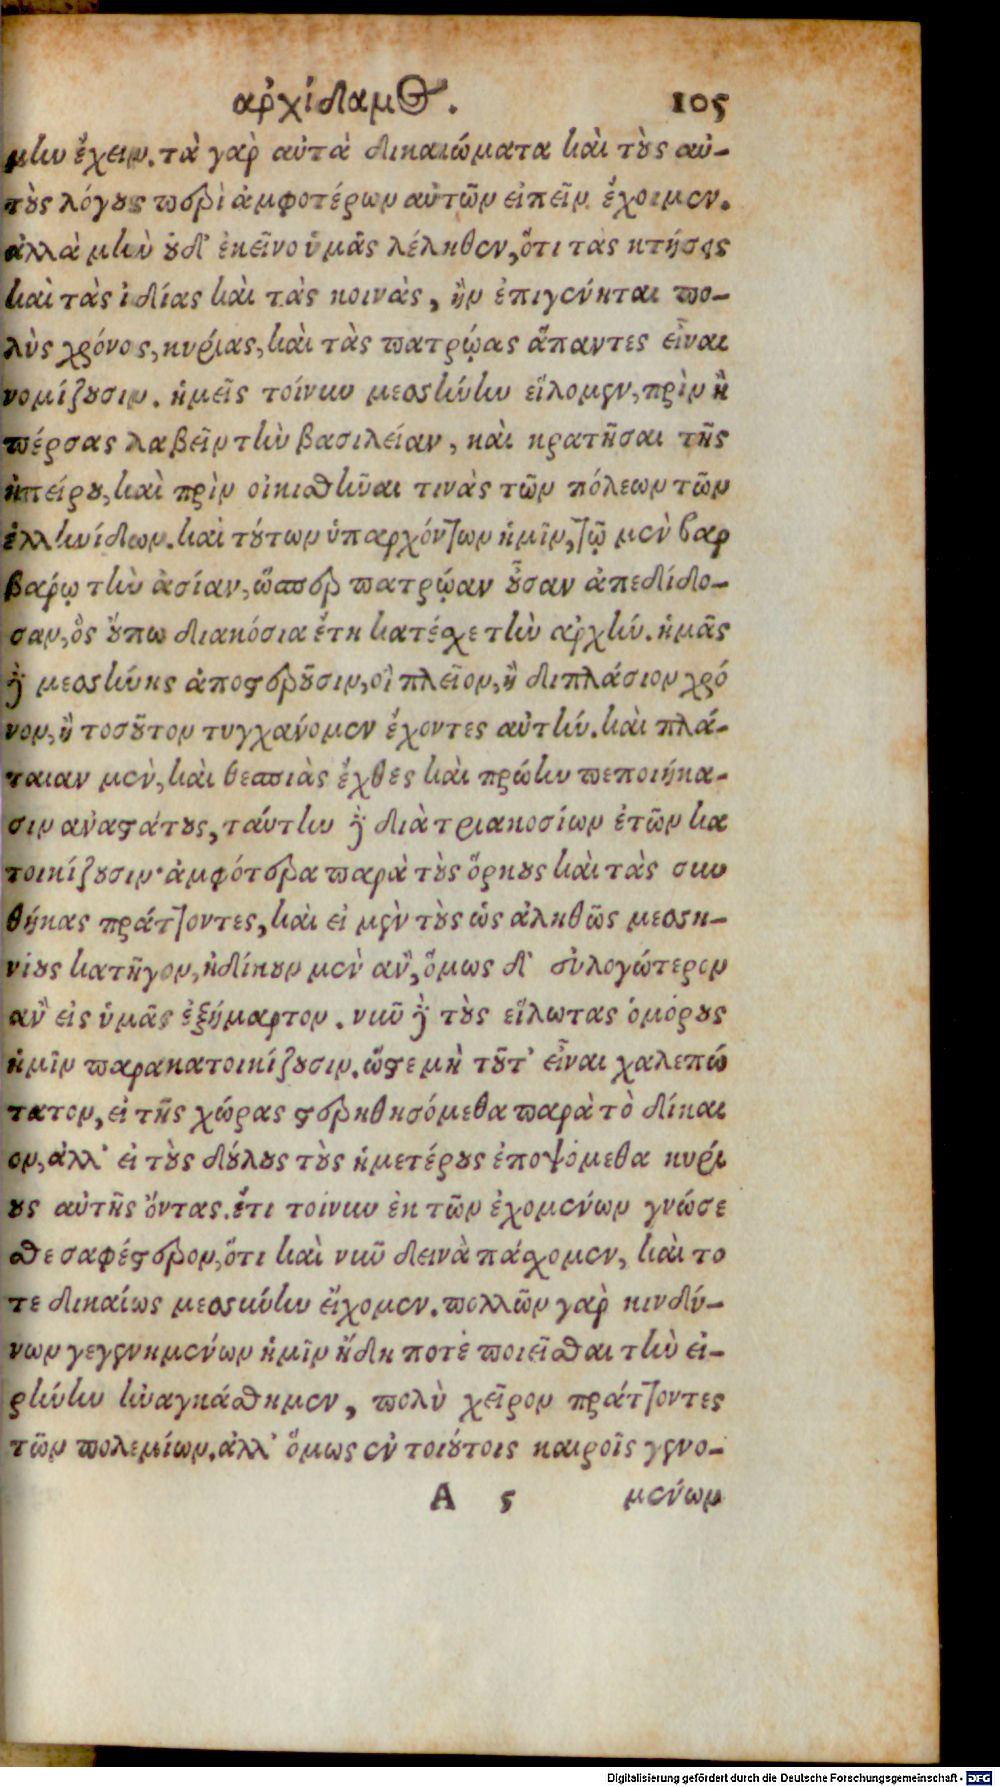 ἀρχίδαμος. 105
μὴν ἔχειν. τὰ γὰρ αὐτὰ δικαιώματα καὶ τοὺς αὐ-
τοὺς λόγους περὶ ἀμφοτέρων αὐτῶν εἰπεῖν ἔχοιμεν.
ἀλλὰ μὴν οὐδ' ἐκεῖνο ὑμᾶς λέληθεν, ὅτι τὰς κτήσεις
καὶ τὰς ἰδίας καὶ τὰς κοινὰς, ἢν ἐπιγένηται πο-
λὺς χρόνος, κυρίας, καὶ τὰς πατρῴας ἅπαντες εἶναι
νομίζουσιν. ἡμεῖς τοίνυν μεσσήνην εἵλομεν, πρὶν ἢ
πέρσας λαβεῖν τὴν βασιλείαν, καὶ κρατῆσαι τῆς
ἠπείρου, καὶ πρὶν οἰκισθῆναι τινὰς τῶν πόλεων τῶν
ἑλληνίδων. καὶ τούτων ὑπαρχόντων ἡμῖν, τῷ μὲν βαρ
βάρῳ τὴν ἀσίαν, ὥσπερ πατρῴαν οὖσαν ἀπεδίδο-
σαν, ὃς οὔπω διακόσια ἔτη κατέσχε τὴν ἀρχήν. ἡμᾶς
δὲ μεσσήνης ἀποστεροῦσιν, οἳ πλεῖον, ἢ διπλάσιον χρό
νον, ἢ τοσοῦτον τυγχάνομεν ἔχοντες αὐτήν. καὶ πλά-
ταιαν μὲν, καὶ θεσπιὰς ἔχθες καὶ πρώην πεποιήκα-
σιν ἀναστάτους, ταύτην δὲ διὰ τριακοσίων ἐτῶν κα
τοικίζουσιν· ἀμφότερα παρὰ τοὺς ὅρκους καὶ τὰς συν
θήκας πράττοντες, καὶ εἰ μὲν τοὺς ὡς ἀληθῶς μεσση-
νίους κατῆγον, ἠδίκουν μὲν ἂν, ὅμως δ' εὐλογώτερον
ἂν εἰς ὑμᾶς ἐξήμαρτον. νῦν δὲ τοὺς εἵλωτας ὁμόρους
ἡμῖν παρακατοικίζουσιν. ὥστε μὴ τοῦτ' εἶναι χαλεπώ
τατον, εἰ τῆς χώρας στερηθησόμεθα παρὰ τὸ δίκαι
ον, ἀλλ' εἰ τοὺς δούλους τοὺς ἡμετέρους ἐποψόμεθα κυρί
ους αὐτῆς ὄντας. ἔτι τοίνυν ἐκ τῶν ἐχομένων γνώσε
σθε σαφέστερον, ὅτι καὶ νῦν δεινὰ πάσχομεν, καὶ το
τε δικαίως μεσσήνην εἴχομεν. πολλῶν γὰρ κινδύ-
νων γεγενημένων ἡμῖν ἤδη ποτὲ ποιεῖσθαι τὴν εἰ-
ρήνην ἠναγκάσθημεν, πολὺ χεῖρον πράττοντες
τῶν πολεμίων. ἀλλ' ὅμως ἐν τοιούτοις καιροῖς γενο-
A 5 μένων
Digitalisierung gefördert durch die Deutsche Forschungsgemeinschaft - DFG